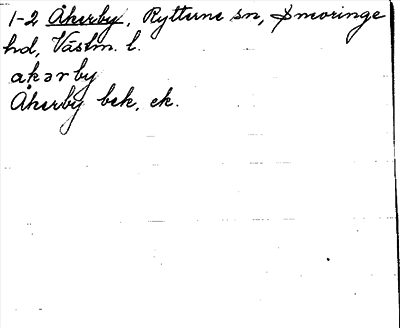 1-2 Åkerby, Rytterne sn, Snevringe
hd, Västm. l.
akərby
Åkerby bek. ek.